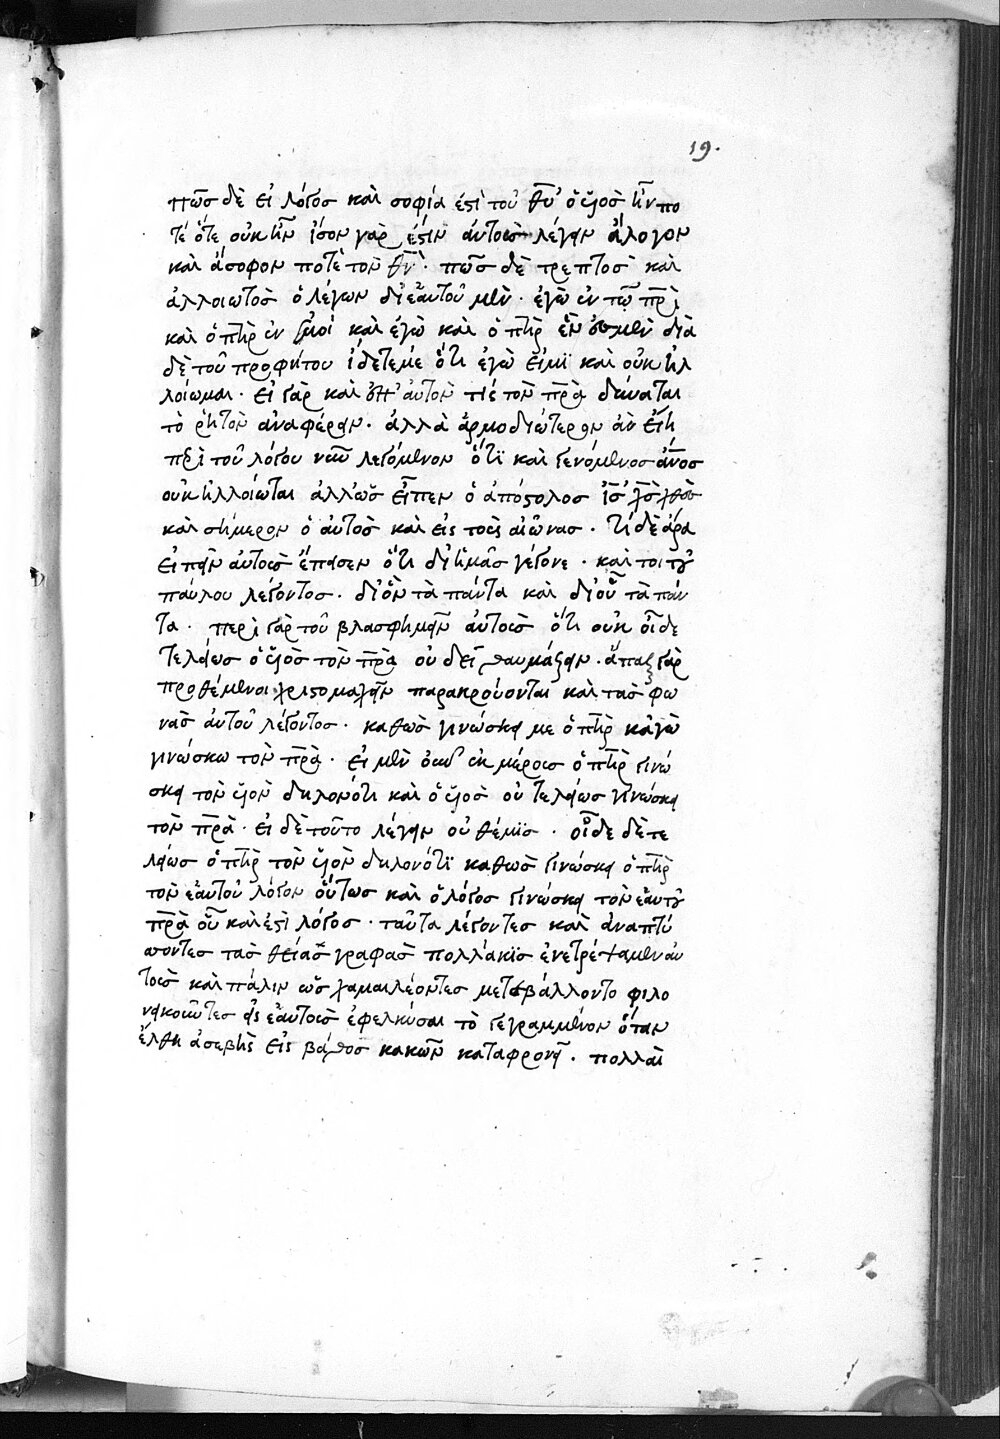 19.
πῶσ δὲ εἰ λόγοσ καὶ σοφία ἐστὶ τοῦ θῦ ὁ ὑιὸσ ἦν πο
τέ ὅτε οὐκ ἦν ἴσον γάρ ἐστιν αὐτοὺσ λέγειν ἄλογον
καὶ ἄσοφον ποτὲ τὸν θν̄. πῶσ δὲ τρεπτὸσ καὶ
ἀλλοιωτὸσ ὁ λέγων δι ἑαυτοῦ μὲν. ἐγὼ ἐν τῶ πρ̄ὶ
καὶ ὁ πη̄ρ ἐν ἐμοί καὶ ἐγὼ καὶ ὁ πη̄ρ ἕν ἐσμεν διὰ
δὲ τοῦ προφήτου ἴδετέ με ὅτι ἐγὼ εἰμϊ καὶ οὐκ ἠλ
λοίωμαι. εἰ γὰρ καὶ ἐπ' αὐτὸν τίσ τὸν πρ̄α δύναται
τὸ ῥητὸν ἀναφέρειν. ἀλλὰ ἁρμοδιώτερον ἀν εἴη
περὶ τοῦ λόγου νῦν λεγόμενον ὅτϊ καὶ γενόμενοσ ἄνοσ
οὐκ ἠλλοίωται ἀλλ ὡσ εἶπεν ὁ ἀπόστολοσ ἰσ̄ χσ̄ χθὲσ
καὶ σήμερον ὁ αὐτὸσ καὶ εἰσ τοὺσ αἰῶνασ. τί δὲ ἄρα
εἰπεῖν αὐτοὺσ ἔπεισεν ὅτι δι ἡμᾶσ γέγονε. καὶ τοι τοῦ
παύλου λέγοντοσ. δι ὃν τὰ πάντα καὶ δι οὗ τὰ πάν
τα. περὶ γὰρ τοῦ βλασφημεῖν αὐτοὺσ ὅτι οὐκ οἶδε
τελείωσ ὁ ὑιὸσ τὸν πρ̄α οὐ δεῖ θαυμάζειν. ἅπαξ γὰρ
προθέμενοι χριστομαχεῖν παρακρούονται καὶ τὰσ φω
νὰσ αὐτοῦ λέγοντοσ. καθὼσ γινώσκει με ὁ πη̄ρ κἀγὼ
γινώσκω τὸν πρ̄α. εἰ μὲν οὖν ἐκ μέρουσ ὁ πη̄ρ γινώ
σκει τὸν ὑιὸν δηλονότι καὶ ὁ ὑιὸσ οὐ τελείωσ γινώσκει
τὸν πρ̄α. εἰ δὲ τοῦτο λέγειν οὐ θέμϊσ. οἶδε δὲ τε
λείωσ ὁ πη̄ρ τὸν ὑιὸν δηλονότϊ καθὼσ γινώσκει ὁ πη̄ρ
τὸν ἑαυτοῦ λόγον οὕτωσ καὶ ὁ λόγοσ γινώσκει τὸν ἑαυτοῦ
πρ̄α οὗ καὶ ἐστὶ λόγοσ. ταῦτα λέγοντεσ καὶ ἀναπτύ
σσοντεσ τὰσ θείασ γραφὰσ πολλάκϊσ ἐνετρέψαμεν αὐ
τοὺσ καὶ πάλιν ὡσ χαμαιλέοντεσ μετεβάλλοντο φιλο
νεικοῦντεσ εἰσ ἑαυτοὺσ ἐφελκύσαι τὸ γεγραμμένον ὅταν
ἔλθη ἀσεβὴσ εἰσ βάθοσ κακῶν καταφρονεῖ. πολλαὶ